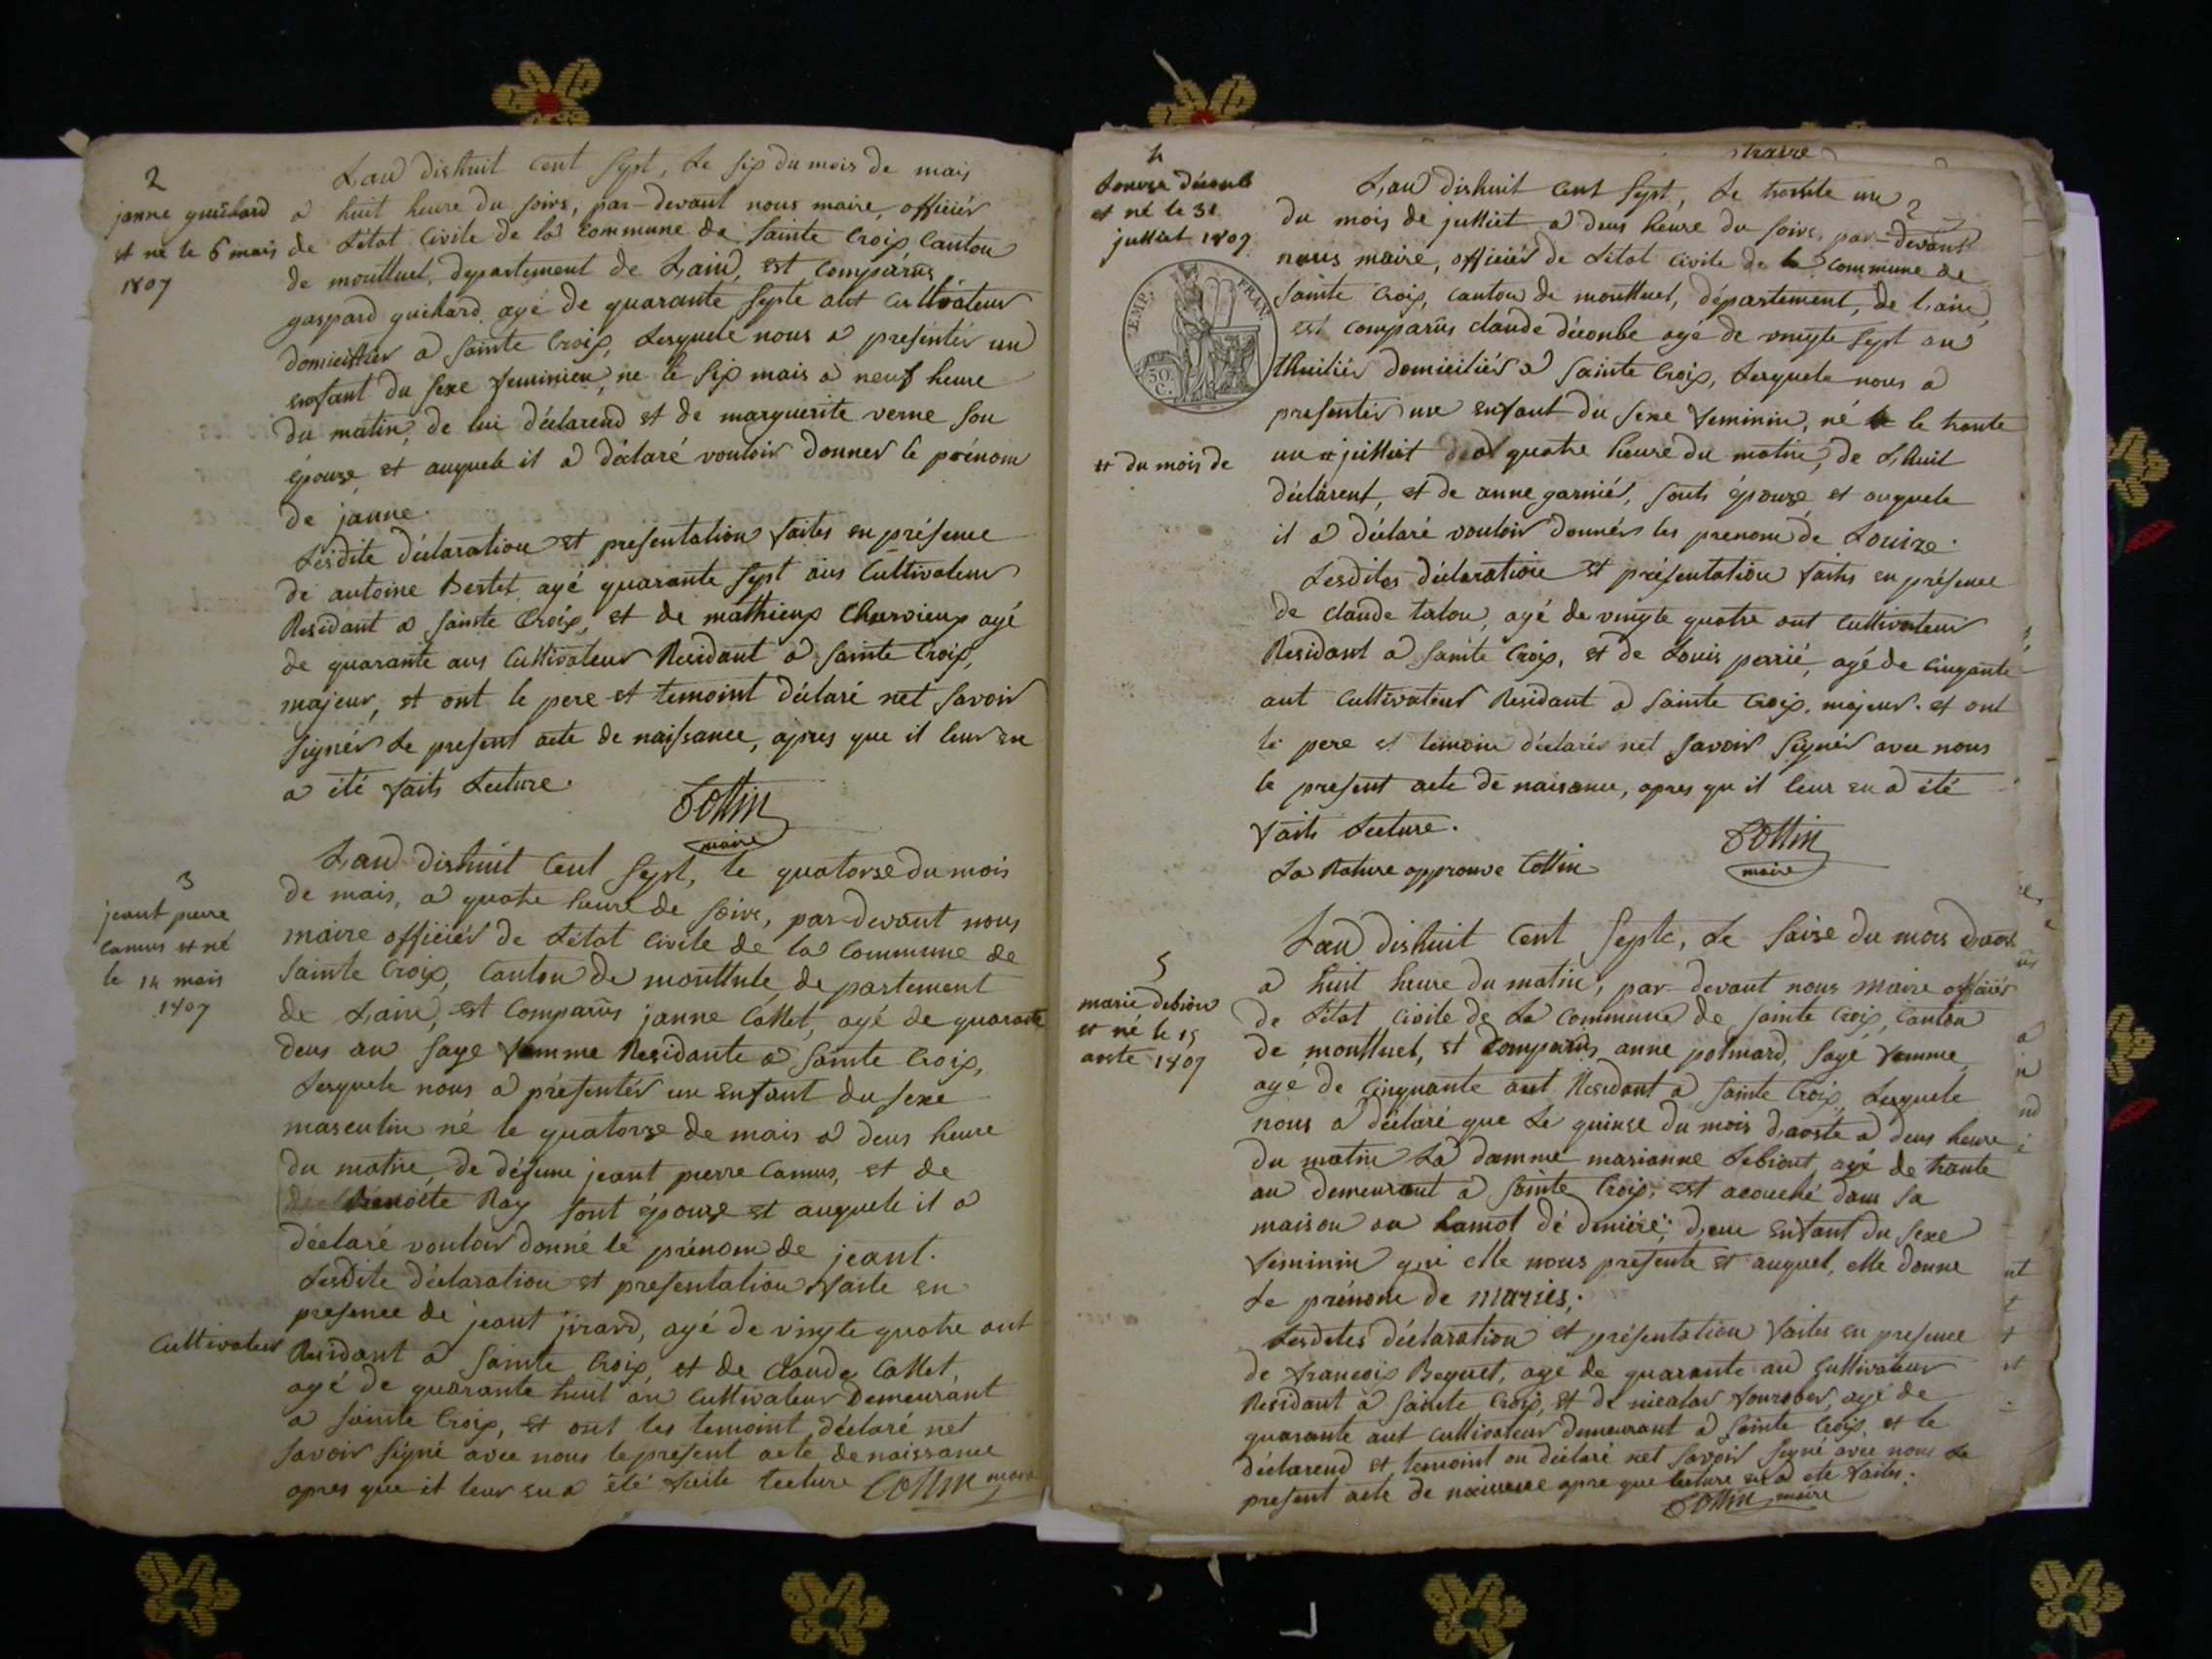 2
janne guichard
et né le 6 mais
1807
Lan dishuit cent sept, le six du mois de mais
a huit heure du soirs, par-devant nous maire, officiér
de Létat Civile de la Commune de Sainte Croix Canton
de monttuel, departement de Lain, est comparus
gaspard guichard agé de quarante septe ant cultivateur
domicillier a Sainte Croix, Lesquele nous a presentér un
enfant du sexe feminien, ne le six mais a neuf heure
du matin, de lui déclarend et de marguerite verne son
épouse et auquele il a déclaré vouloir donner le prénom
de janne.
Lésdite déclaration et presentation faites en présence
de antoine Bertet agé quarante sept ans Cultivateur
Residant a Sainte Croix, et de mathieux Chervieux agé
de quarante ans Cultivateur Residant a Sainte Croix,
majeur, et ont le pere et temoint déclaré net savoir
signér Le present acte de naissance, apres que il leur en
a été faits Lecture.
Cottin
maire
3
jeant pierre
Camus et né
le 14 mais
1807
Lan dishuit Cent sept, le quatorse du mois
de mais, a quatre heure de soirs, par-devant nous
maire officiér de Létat Civile de la Commune de
Sainte Croix, Canton de monttule, departement
de Lain, est Comparus janne Collet, agé de quarante
deus an sage femme Residante a Sainte Croix,
Lesquele nous a présentér un enfant du sexe
masculin né le quatorse de mais a deus heure
du matin, de défunc jeant pierre Camus, et de
Benoite Ray sont épouse et auquele il a
déclaré vouloir donné le prénom de jeant.
Lesdite déclaration et presentation faite en
presence de jeant jirard, agé de vingte quatre ant
Cultivateur
Residant a Sainte Croix, et de Claude Collet,
agé de quarante huit an Cultivateur Demeurant
a Sainte Croix, et ont les temoint déclaré net
savoir signé avec nous le present acte de naissance
apres que il leur en a été faite lecture Cottin maire
4
Louise décombe
et né le 31
julliet 1807
traire
Lan dishuit Cent Sept, Le trante un
du mois de julliet a deus heure du soirs, par-devant
nous maire, officiér de Létat Civile de la Commune de
Sainte Croix, Canton de monttuel, département, de L'ain,
est comparus claude décombe agé de vingte sept an
thuiliér domiciliér a Sainte Croix, Lesquele nous a
presentér une enfant du sexe feminin, né le trante
un # julliet a quatre heure du matin, de Lhuil
# du mois de
déclarent, et de anne garniér, sont épouse et auquele
il a déclaré vouloir donnér les prenom de Louize.
Lesdites déclaration et présentation faites en présence
de claude talon, agé de vingte quatre ant cultivateur
Residant a Sainte Croix, et de Louis perrié, agé de cinqante
ant cultivateur Residant a Sainte Croix, majeur. et ont
le pere et temoin déclarér net savoir signér avec nous
le present acte de naisance, apres qu il leur en a été
faits Lecture.
La Rature approuve Cottin
Cottin
maire
5
marie debion
et né le 15
aoste 1807
Lan dishuit Cent Septe, Le saise du mois daost
a huit heure du matin, par-devant nous maire officiér
de Létat Civile de La Commune de Sainte Croix, Canton
de monttuel, et comparus anne polmard, sage femme
agé de cinquante ant Residant a Sainte Croix, Lesquele
nous a déclaré que Le quinse du mois d,aoste a deus heure
du matin La damme marianne debiont, agé de trante
an demeurant a Sainte Croix, est acouché dans sa
maison au hamot dé d, une enfant du sexe
feminin qui elle nous presente et auquel, elle donne
Le prénom de maries.
Lesdites déclaration et présentation faites en presence
de francois Bequet, age de quarante an Cultivateur
Residant a Sainte Croix, et de nicalas agé de
quarante ant cultivateur demeurant a Sainte Croix, et le
déclarend et temoint on déclaré net savoir signé avec nous Le
present acte de naissence apre que lecture en a ete faites.
Cottin maire